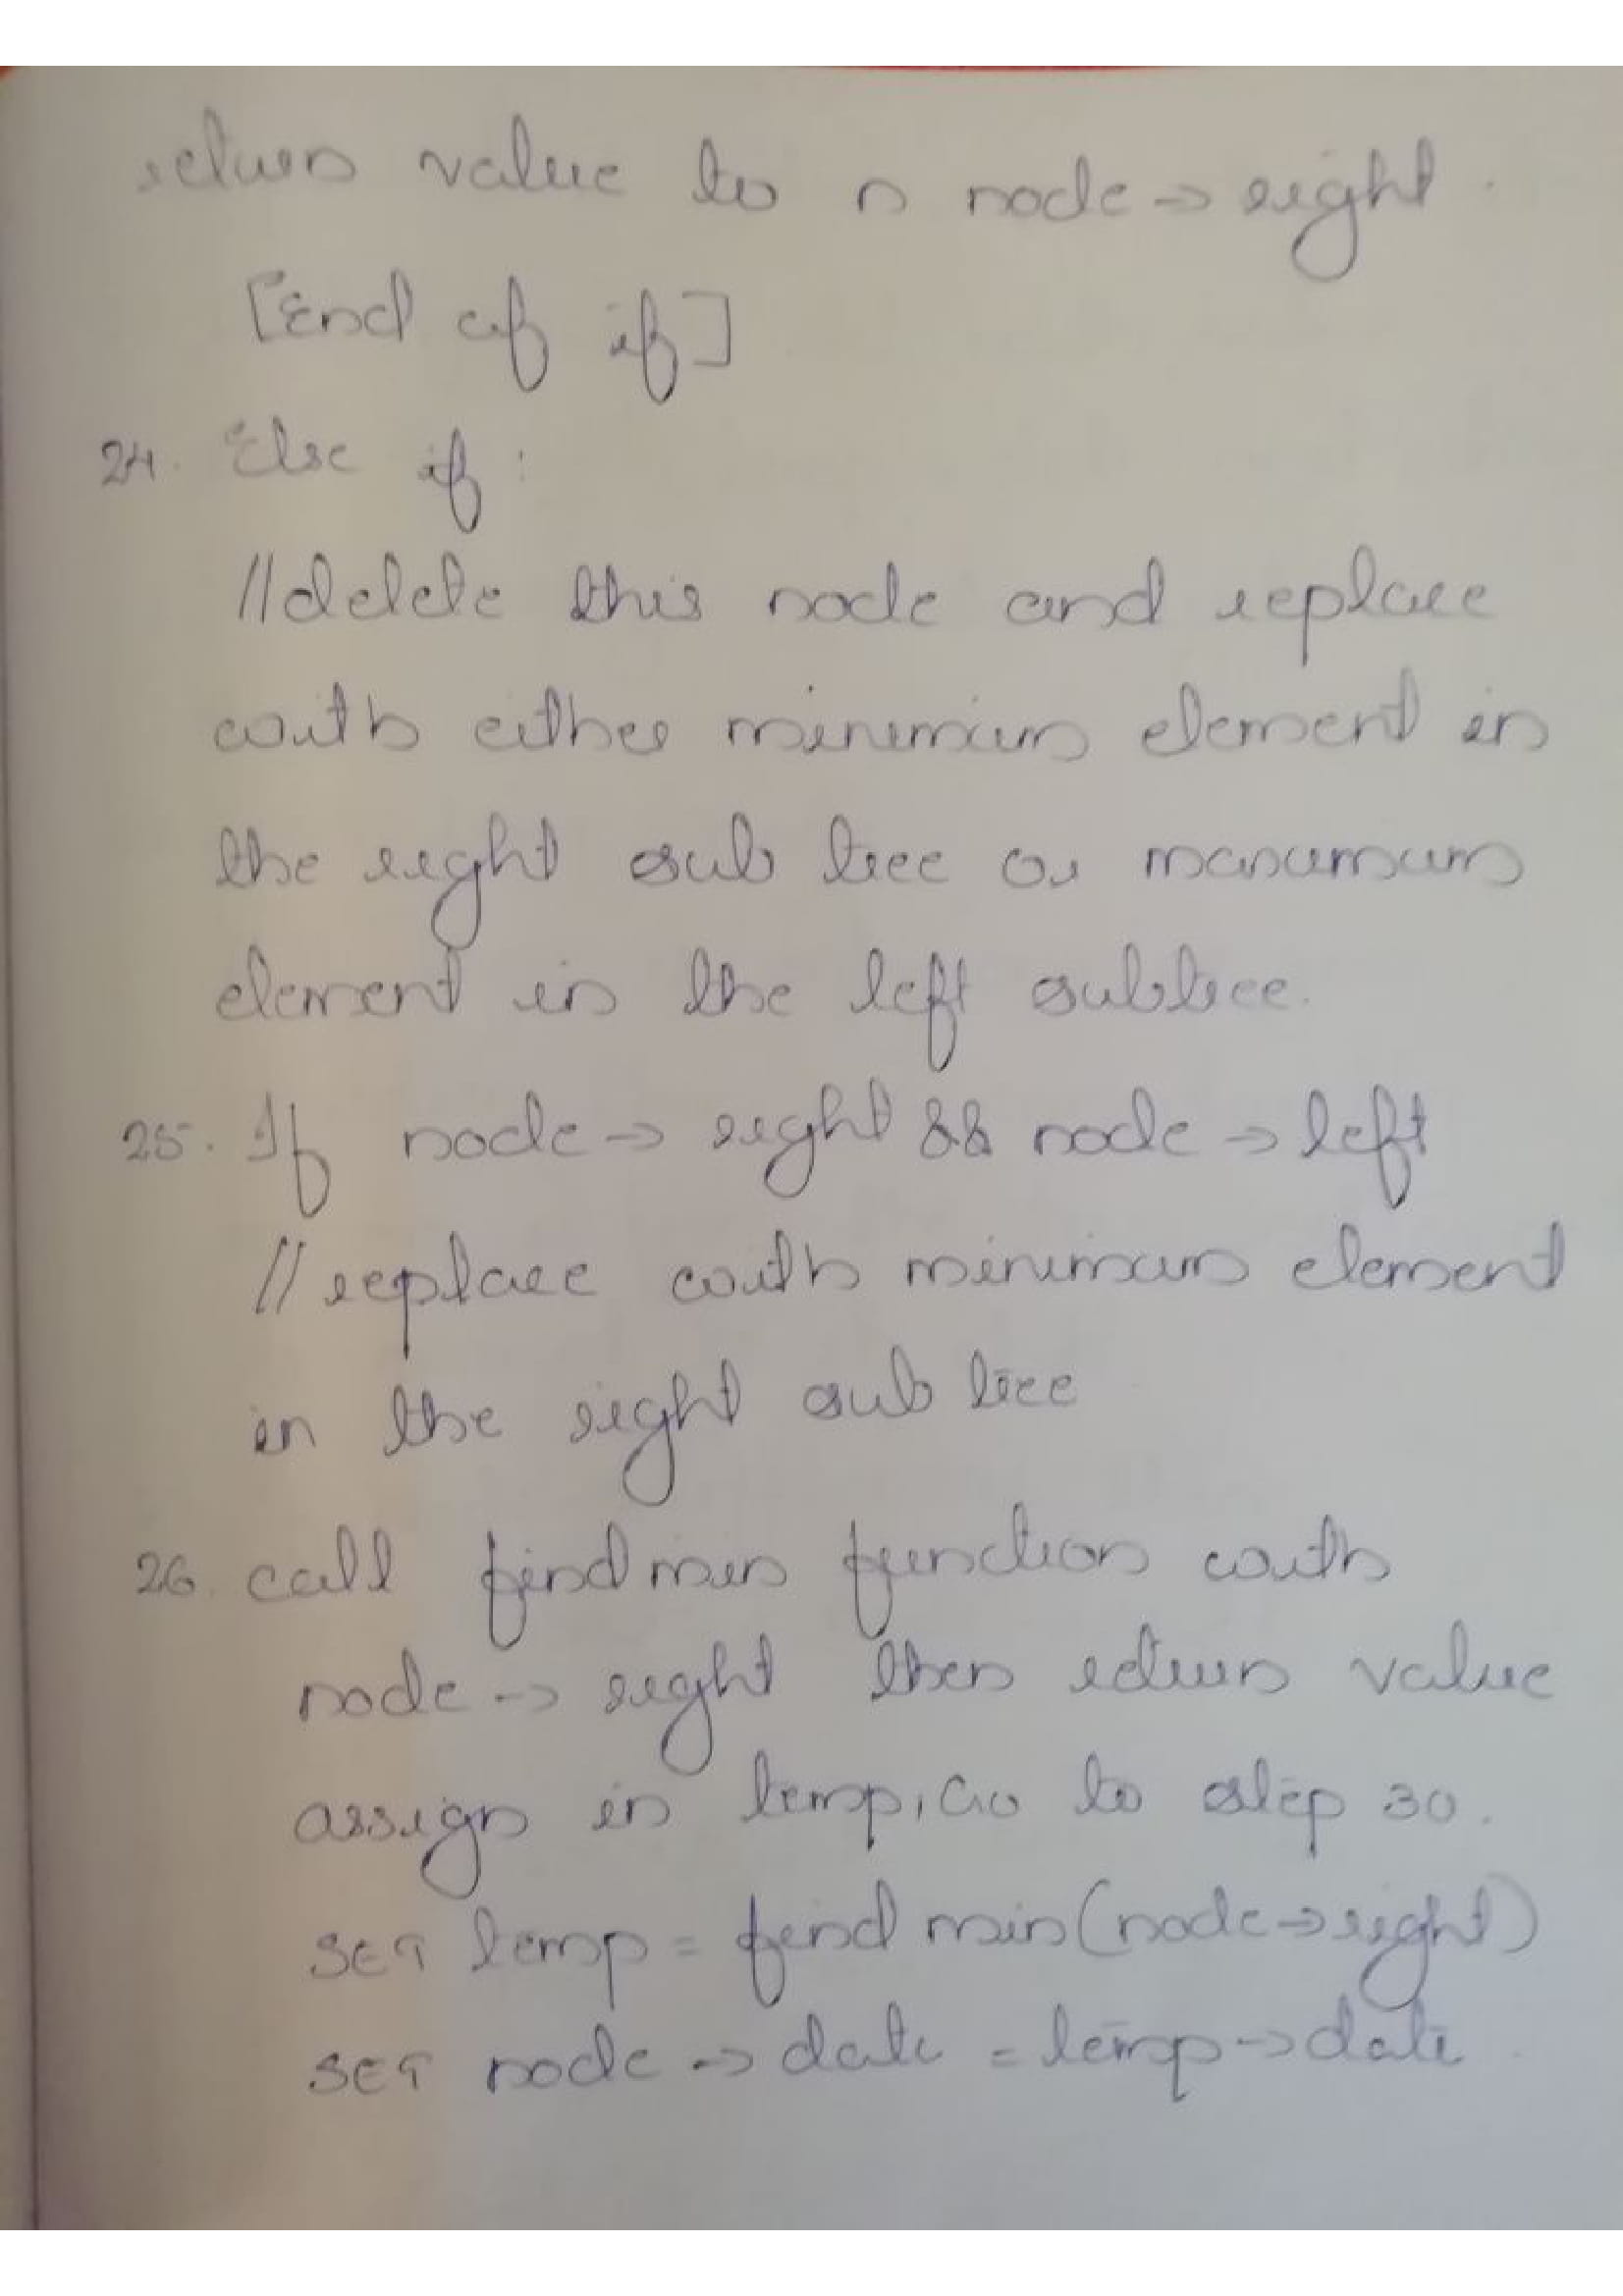 return value to n node → right.
[End of if]
24. Else if :
//delete this node and replace
with either minimum element in
the right sub tree or maximum
element in the left subtree.
25. If node → right && node → left
// replace with minimum element
in the right sub tree
26. call find min function with
node → right then return value
assign in temp, Go to step 30.
SET temp = find min(node→right)
SET node → data = temp→data.